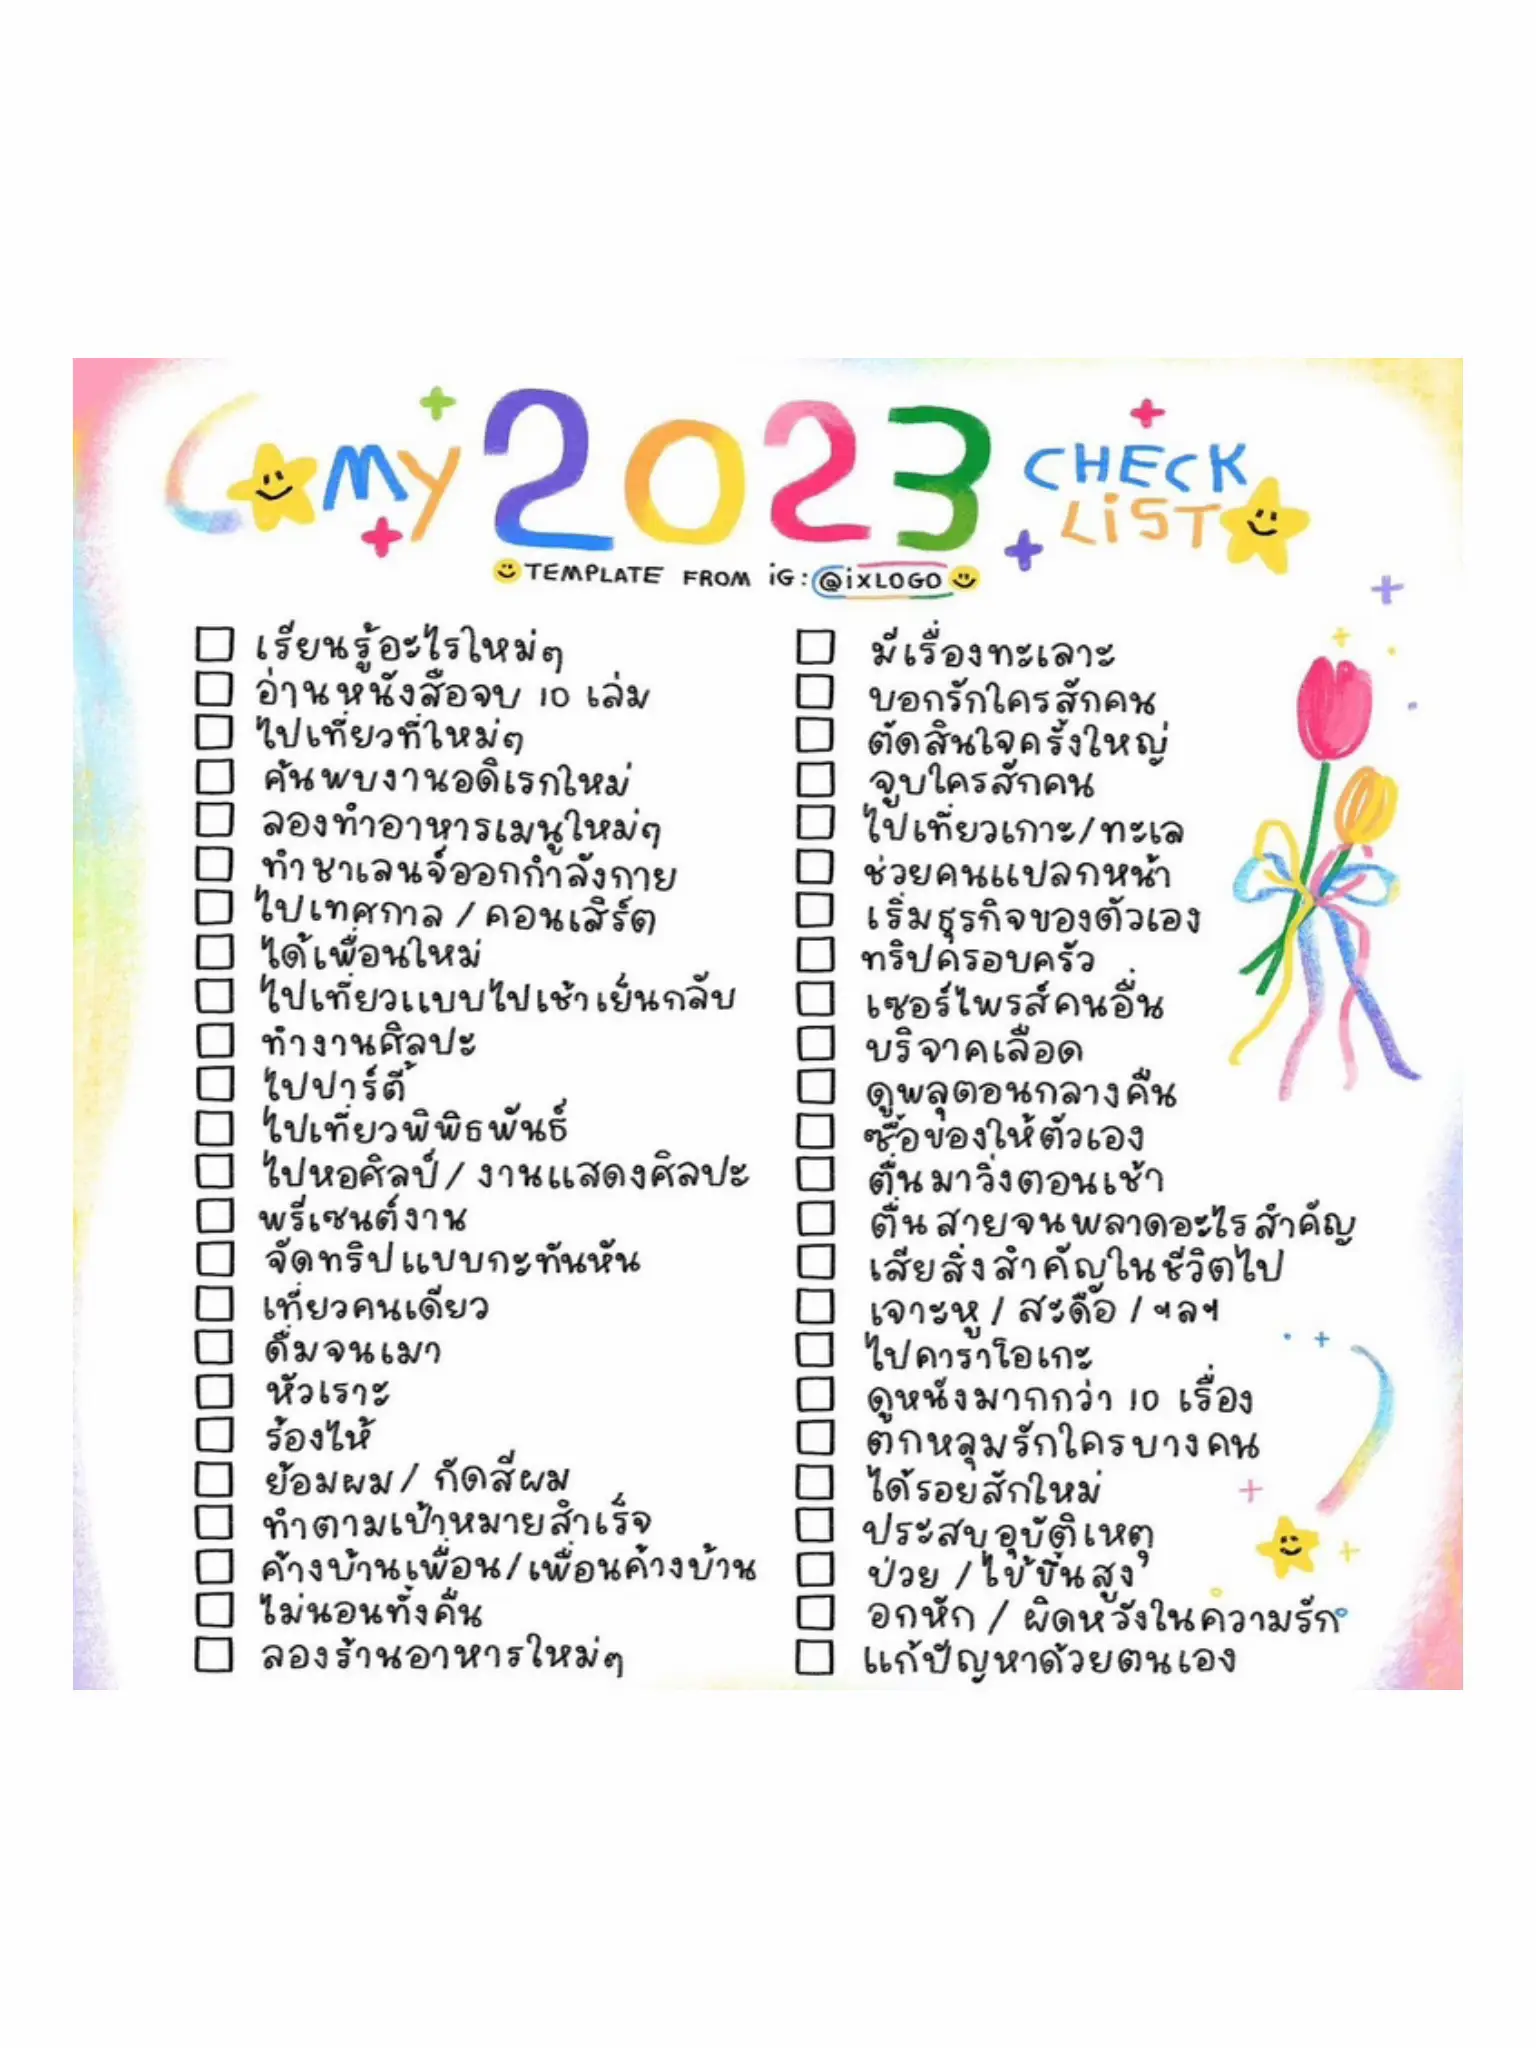 MY 2023 CHECK
LIST
TEMPLATE FROM iG: @iXLOGO
เรียนรู้อะไรใหม่ๆ
อ่านหนังสือจบ 10 เล่ม
ไปเที่ยวที่ใหม่ๆ
ค้นพบงานอดิเรกใหม่
ลองทำอาหารเมนูใหม่ๆ
ทำชาเลนจ์ออกกำลังกาย
ไปเทศกาล / คอนเสิร์ต
ได้เพื่อนใหม่
ไปเที่ยวแบบไปเช้าเย็นกลับ
ทำงานศิลปะ
ไปปาร์ตี้
ไปเที่ยวพิพิธพันธ์
ไปหอศิลป์ / งานแสดงศิลปะ
พรีเซนต์งาน
จัดทริปแบบกะทันหัน
เที่ยวคนเดียว
ดื่มจนเมา
หัวเราะ
ร้องไห้
ย้อมผม / กัดสีผม
ทำตามเป้าหมายสำเร็จ
ค้างบ้านเพื่อน/เพื่อนค้างบ้าน
ไม่นอนทั้งคืน
ลองร้านอาหารใหม่ๆ
มีเรื่องทะเลาะ
บอกรักใครสักคน
ตัดสินใจครั้งใหญ่
จูบใครสักคน
ไปเที่ยวเกาะ/ทะเล
ช่วยคนแปลกหน้า
เริ่มธุรกิจของตัวเอง
ทริปครอบครัว
เซอร์ไพรส์คนอื่น
บริจาคเลือด
ดูพลุตอนกลางคืน
ซื้อของให้ตัวเอง
ตื่นมาวิ่งตอนเช้า
ตื่นสายจนพลาดอะไรสำคัญ
เสียสิ่งสำคัญในชีวิตไป
เจาะหู / สะดือ / ฯลฯ
ไปคาราโอเกะ
ดูหนังมากกว่า 10 เรื่อง
ตกหลุมรักใครบางคน
ได้รอยสักใหม่
ประสบอุบัติเหตุ
ป่วย / ไข้ขึ้นสูง
อกหัก / ผิดหวังในความรัก
แก้ปัญหาด้วยตนเอง